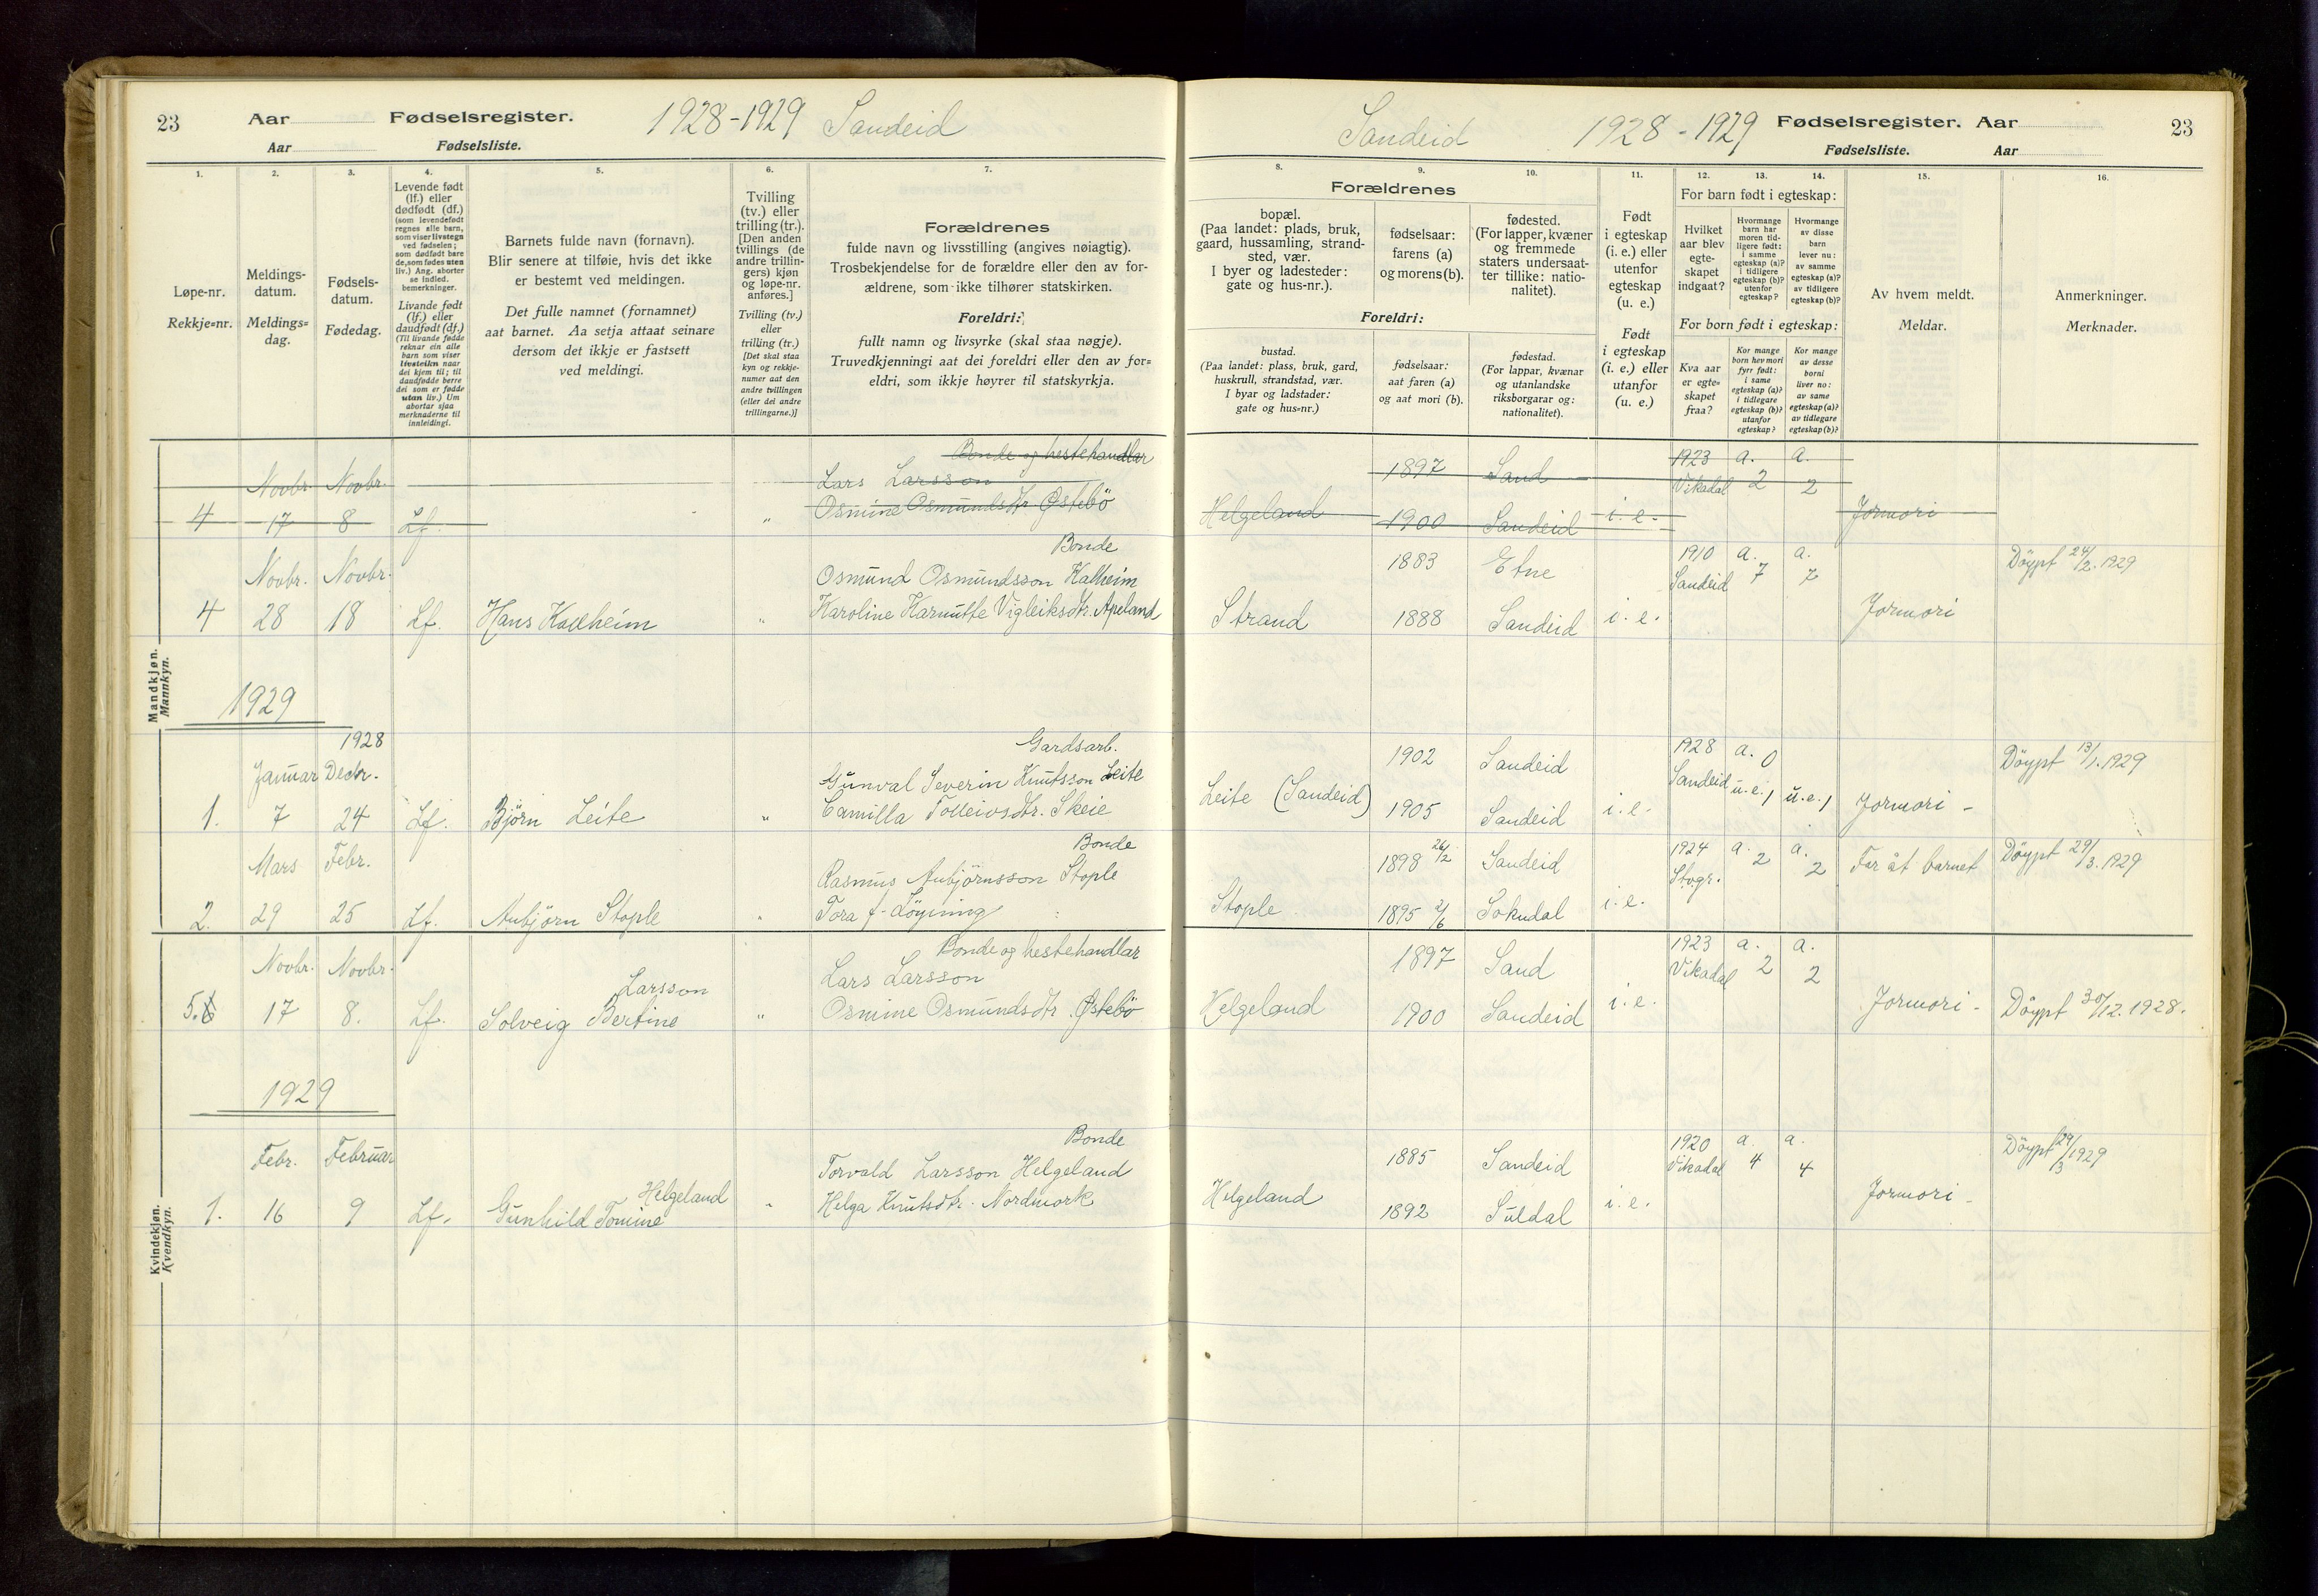 23
Aar
Fødselsregister.
1928-1929 Sandeid
Aar
Fødselsliste.
1.
2.
3.
4.
5.
6.
7.
Løpe-nr.
Rekkje=nr.
Meldings-
datum.
Meldings=
dag.
Fødsels-
datum.
Fødedag.
Levende født
(lf.) eller
dødfødt (df.)
(som levendefødt
regnes alle barn,
som viser livstegn
ved fødselen;
som dødfødt bare
de, som fødes uten
liv.) Ang. aborter
se indled.
bemerkninger.
Livande født
(lf.) eller
daudfødt (df.)
(Til livande fødde
reknar ein alle
barn som viser
livsteikn naar
dei kjem til; til
daudfødde berre
dei som er fødde
utan liv.) Um
abortar sjaa
merknaderne til
innleidingi.
Barnets fulde navn (fornavn).
Blir senere at tilføie, hvis det ikke
er bestemt ved meldingen.
Det fulle namnet (fornamnet)
aat barnet. Aa setja attaat seinare
dersom det ikkje er fastsett
ved meldingi.
Tvilling
(tv.) eller
trilling (tr.).
[Den anden
tvillings (de
andre trillin-
gers) kjøn
og løpe-nr.
anføres.]
Tvilling (tv.)
eller
trilling (tr.)
[Det skal staa
kyn og rekkje-
numer aat den
andre tvillingen
(eller dei andre
trillingarne.)]
Forældrenes
fulde navn og livsstilling (angives nøiagtig).
Trosbekjendelse for de forældre eller den av for-
ældrene, som ikke tilhører statskirken.
Foreldri:
fullt namn og livsyrke (skal staa nøgje).
Truvedkjenningi aat dei foreldri eller den av for=
eldri, som ikkje høyrer til statskyrkja.
Bonde og hestehandlar
Novbr. Novbr. Lars Larsson
4 17 8 Lf. " Osmine Osmundsdtr Østebö
Bonde
Novbr. Novbr. Osmund Osmundsson Kalheim
4 28 18 Lf. Hans Kallheim " Karoline Vigleiksdtr. Apeland
Mandkjøn.
Mannkyn.
1929
1928
Gardsarb.
Januar Decbr. Gunval Severin Knutsson Leite
1. 7 24 Lf. Bjørn Leite " Camilla Tolleivsdtr. Skeie
Bonde
Mars Febr. Rasmus Aubjörnsson Stople
2. 29 25 Lf. Aubjörn Stople " Tora f. Löyning
Bonde og hestehandlar
Novbr. Novbr. Larsson Lars Larsson
5. 17 8. Lf. Solveig Bertine " Osmine Osmundsdtr. Østebö
1929
Bonde
Febr. Februar Helgeland Torvald Larsson Helgeland
1. 16 9 Lf. Gunhild Tomine " Helga Knutsdtr. Nordmork
Kvindekjøn.
Kvendkyn.
Sandeid 1928-1929
Fødselsregister. Aar
23
Fødselsliste.
Aar
8.
9.
10.
11.
12.
13.
14.
15.
16.
Forældrenes
bopæl.
(Paa landet: plads, bruk,
gaard, hussamling, strand-
sted, vær.
I byer og ladesteder:
gate og hus-nr.).
fødselsaar:
farens (a)
og morens (b).
fødested.
(For lapper, kvæner
og fremmede
staters undersaat-
ter tillike: natio-
nalitet).
Foreldri:
bustad.
(Paa landet: plass, bruk, gard,
huskrull, strandstad, vær.
I byar og ladstader:
gate og hus=nr.)
fødselsaar:
aat faren (a)
og aat mori (b).
fødestad.
(For lappar, kvænar
og utanlandske
riksborgarar og:
nationalitet).
Født
i egteskap
(i. e.) eller
utenfor
egteskap
(u. e.)
Født
i egteskap
(i. e.) eller
utanfor
(u. e.)
For barn født i egteskap:
Hvilket
aar blev
egte-
skapet
indgaat?
Hvormange
barn har
moren tid-
ligere født:
i samme
egteskap (a)?
i tidligere
egteskap (b)?
utenfor
egteskap?
Hvormange
av disse
barn
lever nu:
av samme
egteskap (a)?
av tidligere
egteskap (b)?
For born født i egteskap:
Kva aar
er egte=
skapet
fraa?
Kor mange
born hev mori
fyrr født:
i same
egteskap (a)?
i tidlegare
egteskap (b)?
utanfor
egteskap?
Kor mange
av desse
borni
liver no:
av same
egteskap (a)?
av tidlegare
egteskap (b)?
Av hvem meldt.
Meldar.
Anmerkninger.
Merknader.
1897 Sand 1923 a. a.
Vikadal 2 2
Helgeland 1900 Sandeid i. e. Jormori
1883 Etne 1910 a. a. Döypt 24/2. 1929
Sandeid 7 7
Strand 1888 Sandeid i. e. Jormori
1902 Sandeid 1928 a. 0 Döypt 13/1. 1929
Leite (Sandeid) Sandeid u. e. 1 u. e. 1
1905 Sandeid i. e. Jormori -
1898 26/2 Sandeid 1924 a. 2 a. 2 Far åt barnet Döypt 29/3. 1929
Stvgr.
Stople 1895 2/6 Sokndal i. e.
1897 Sand 1923 a. a.
Vikadal 2 2
Helgeland 1900 Sandeid i. e. Jormori - Döypt 30/12. 1928.
1885 Sandeid 1920 a. a. Döypt 29/3 1929
Vikadal 4 4
Helgeland 1892 Suldal i. e. Jormori -